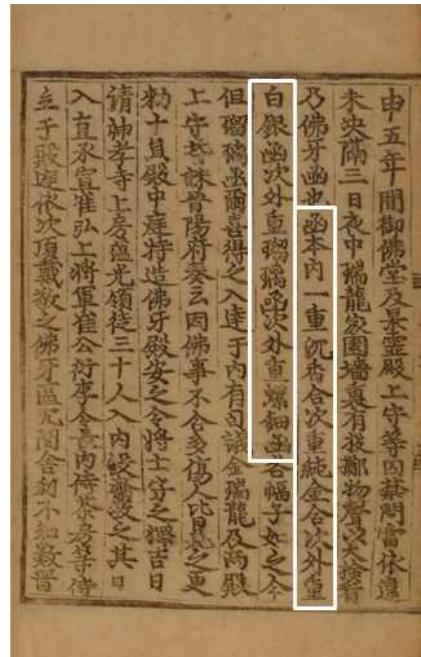 申五年間御佛堂及景靈殿上守等囚禁問當依違
未央隔三日夜中瑞龍家園墻裏有投擲物聲以火檢看
乃佛牙函也函本內一重沉香合次重純金合次外重
白銀函次外重瑠璃函次外重螺鈿函各幅子如之今
但瑠璃函爾喜得之入達于內有司議金瑞龍及兩殿
上守皆誅晉陽府奏云因佛事不合多傷人比見之更
勑十員殿中庭特造佛牙殿安之令將士守之擇吉日
請神孝寺上房蘊光領徒三十人入內設齋敬之其日
入直承宣崔弘上將軍崔公衍李令長內侍茶房等侍
立于殿庭依次頂戴敬之佛牙區穴間舍利不知數晉